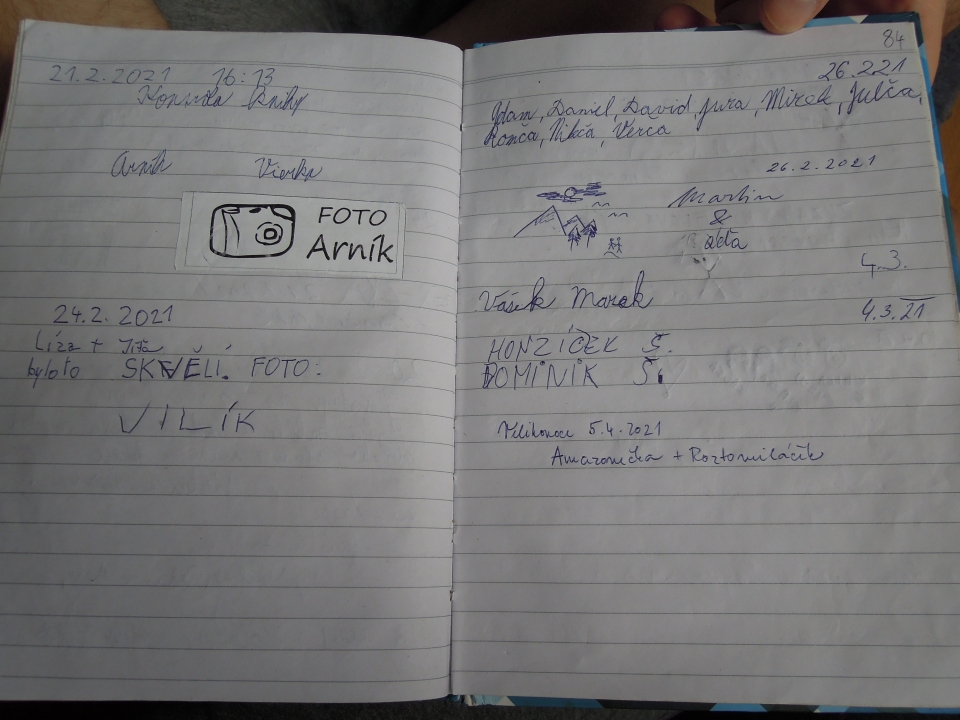 21.2.2021 16:13
Kontrola knihy
Arník Vierka
FOTO
Arník
24.2. 2021
Líza + Jíťa
byloto SKVĚLÍ. FOTO:
VILÍK
84
26.2.21
Adam, Daniel, David, Jura, Mirek, Julča,
Ronča, Nikča, Verča
26.2.2021
Martin
&
4.3.
Vašek Marek
4.3.21
HONZÍČEK Š.
DOMINIK Š.
Velikonoce 5.4.2021
Amazonička + Roztomiláčik